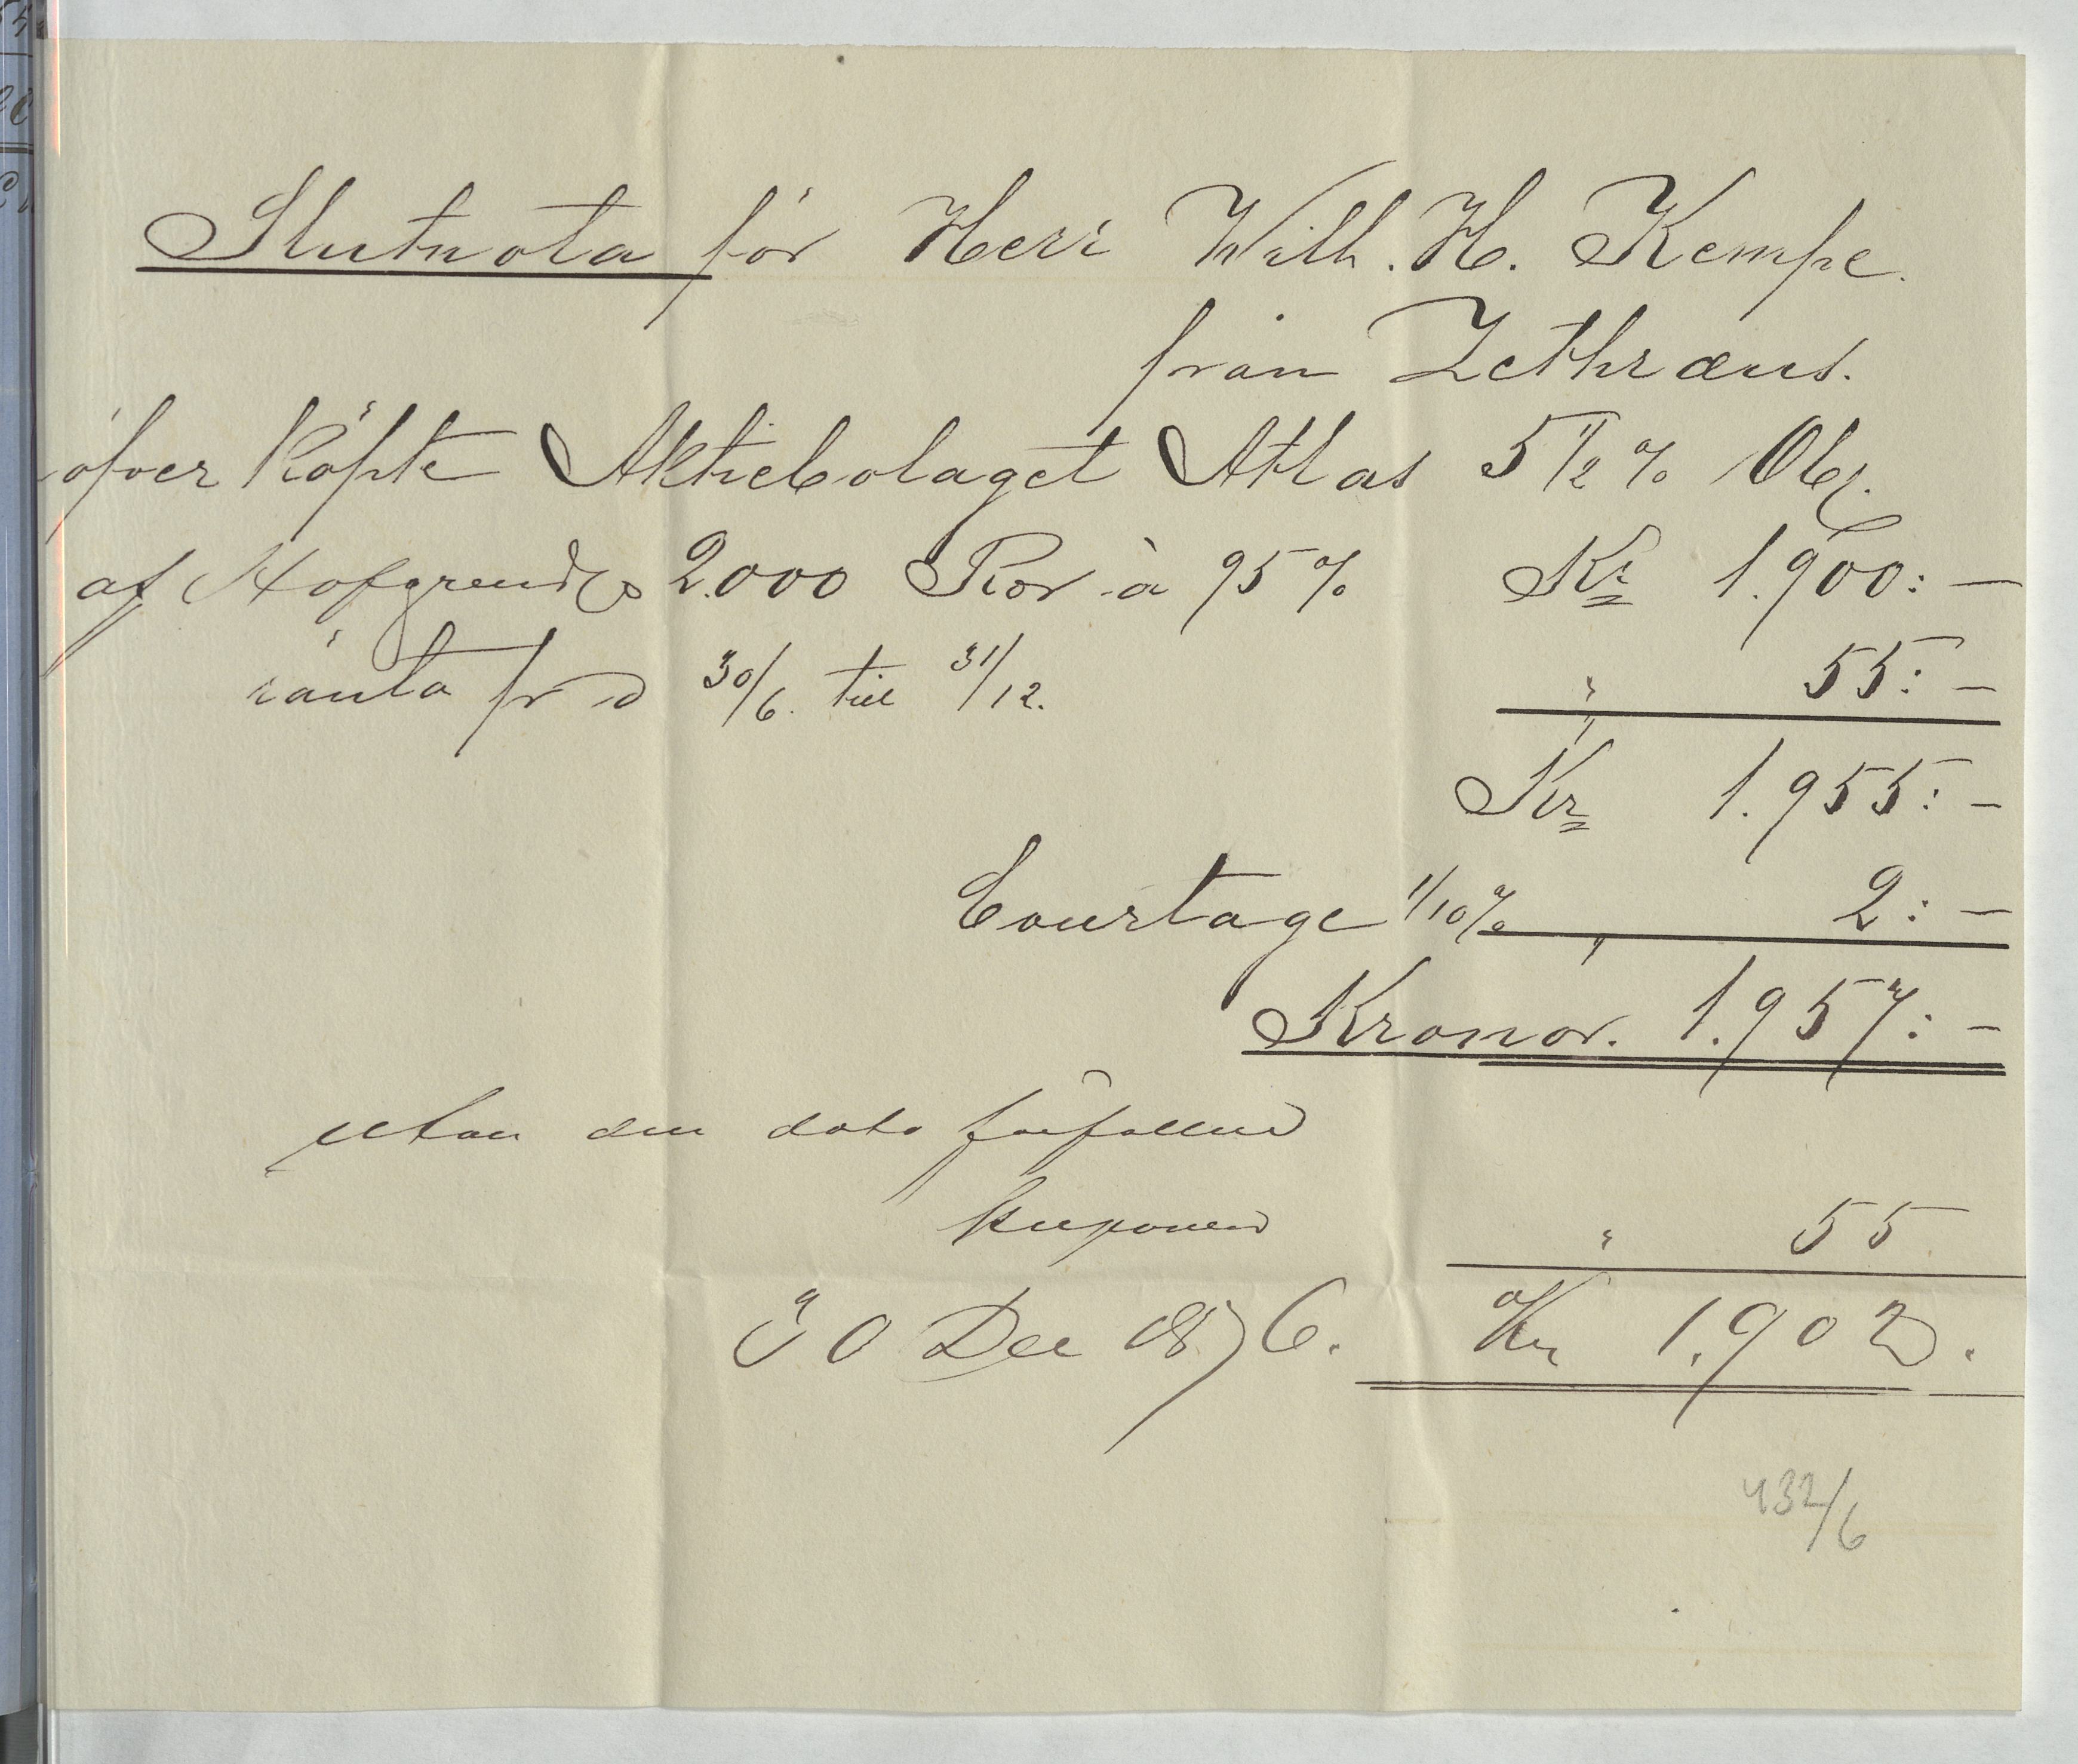 Slutnota för Herr Wilh. H. Kempe.
från Zethræus.
öfver köpte Aktiebolaget Atlas 5 1/2 % Obl.
af Hofgrend 2.000 Kor à 95 % Kr 1.900: —
ränta fr d 30/6. till 31/12. " 55: —
Kr 1.955: —
Courtage 1/10 % " 2: —
Kronor. 1.957: —
utan den dato förfallna
kuponen " 55
30 Dec 1876. Kr 1.902.
432/6